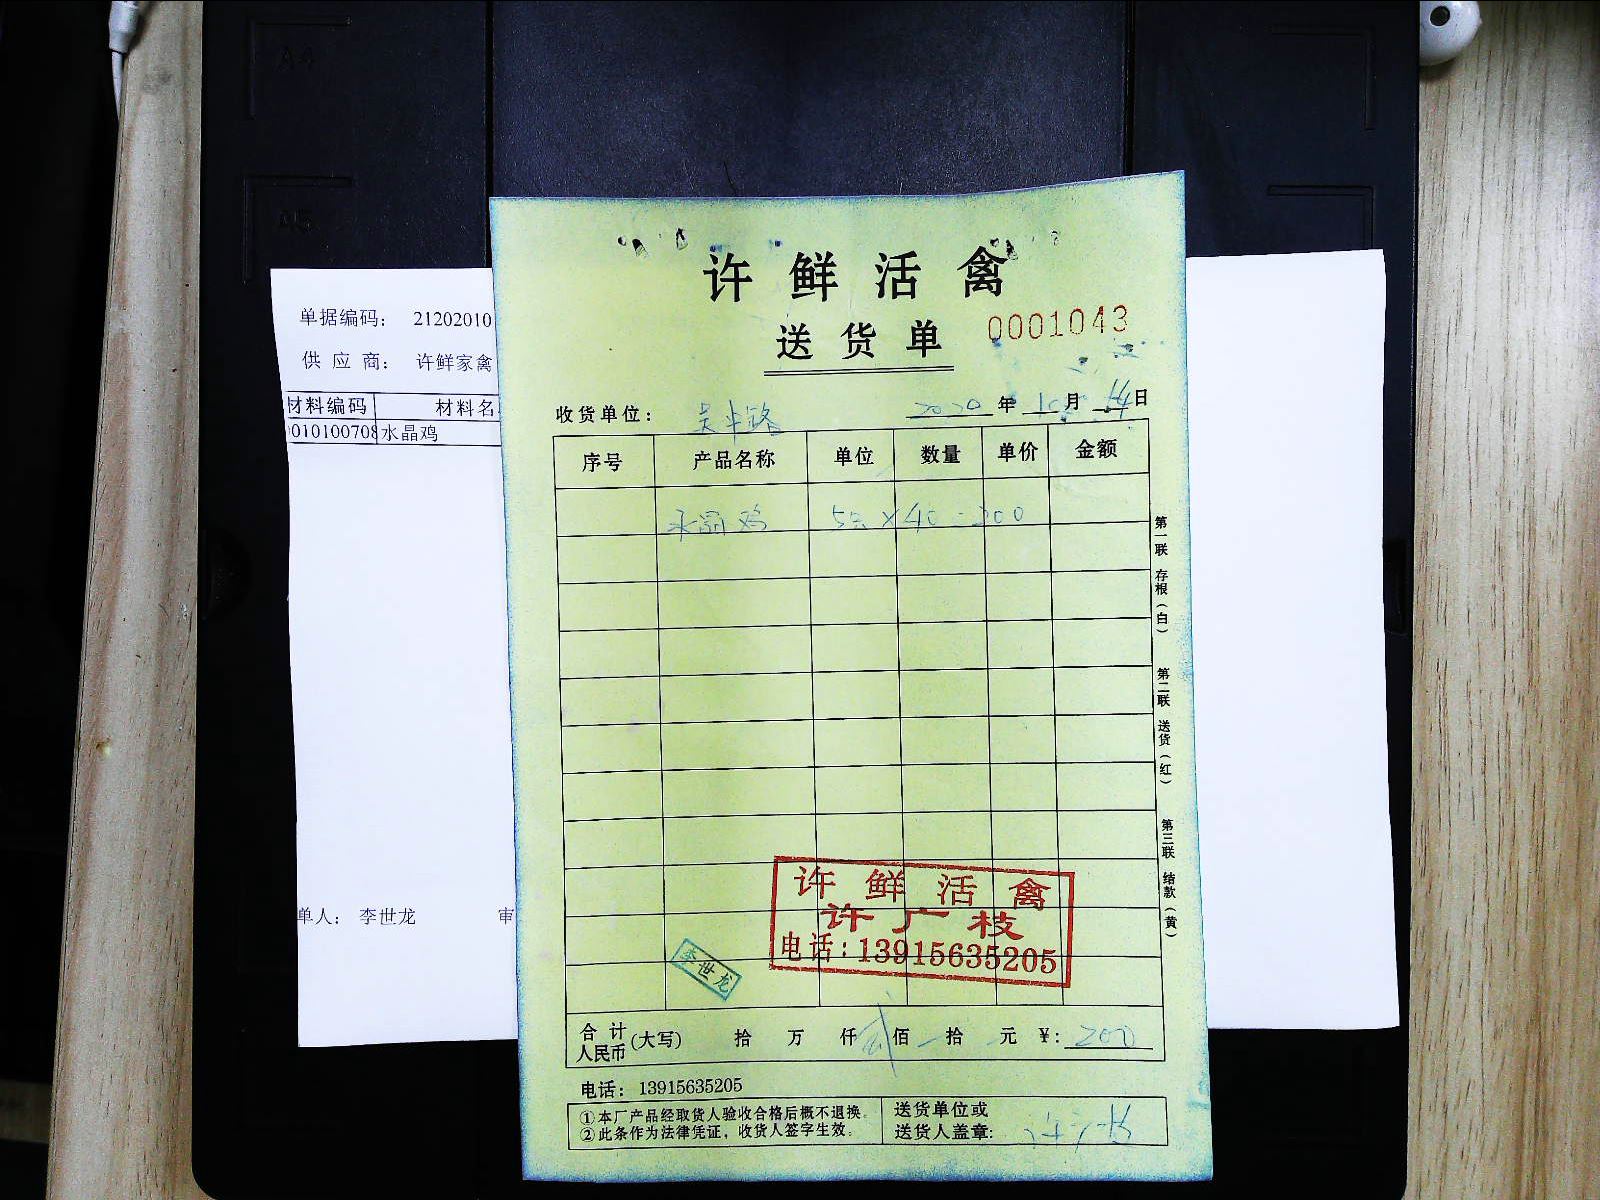 A4
A5
单据编码： 21202010
供 应 商： 许鲜家禽
材料编码 材料名
010100708 水晶鸡
单人： 李世龙 审
许鲜活禽
送货单 0001043
收货单位： 吴中路 2020年10月14日
序号 产品名称 单位 数量 单价 金额
水晶鸡 5只×40=200
第一联 存根（白）
第二联 送货（红）
第三联 结款（黄）
许鲜活禽
许广枝
电话：13915635205
李世龙
合计人民币(大写) 拾 万 仟 贰 佰 拾 元 ¥: 200
电话： 13915635205
①本厂产品经取货人验收合格后概不退换。
②此条作为法律凭证，收货人签字生效。
送货单位或
送货人盖章: